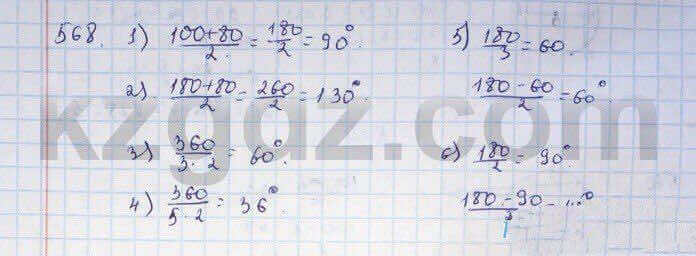 568. 1) (100+80)/2 = 180/2 = 90°
2) (180+80)/2 = 260/2 = 130°.
3) 360/(3·2) = 60°.
4) 360/(5·2) = 36°.
5) 180/3 = 60.
(180-60)/2 = 60°.
6) 180/2 = 90°.
(180-90)/ - ...°
kzgdz.com